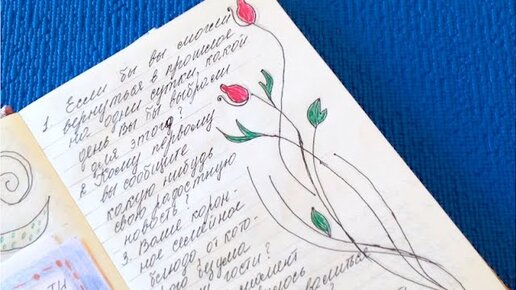 1. Если бы вы смогли
вернуться в прошлое
на одни сутки какой
день вы бы выбрали
для этого?
2. Кому первому
вы сообщите
какую нибудь
свою радостную
новость?
3. Ваше корон-
ное семейное
блюдо, от кото-
гости?
момент